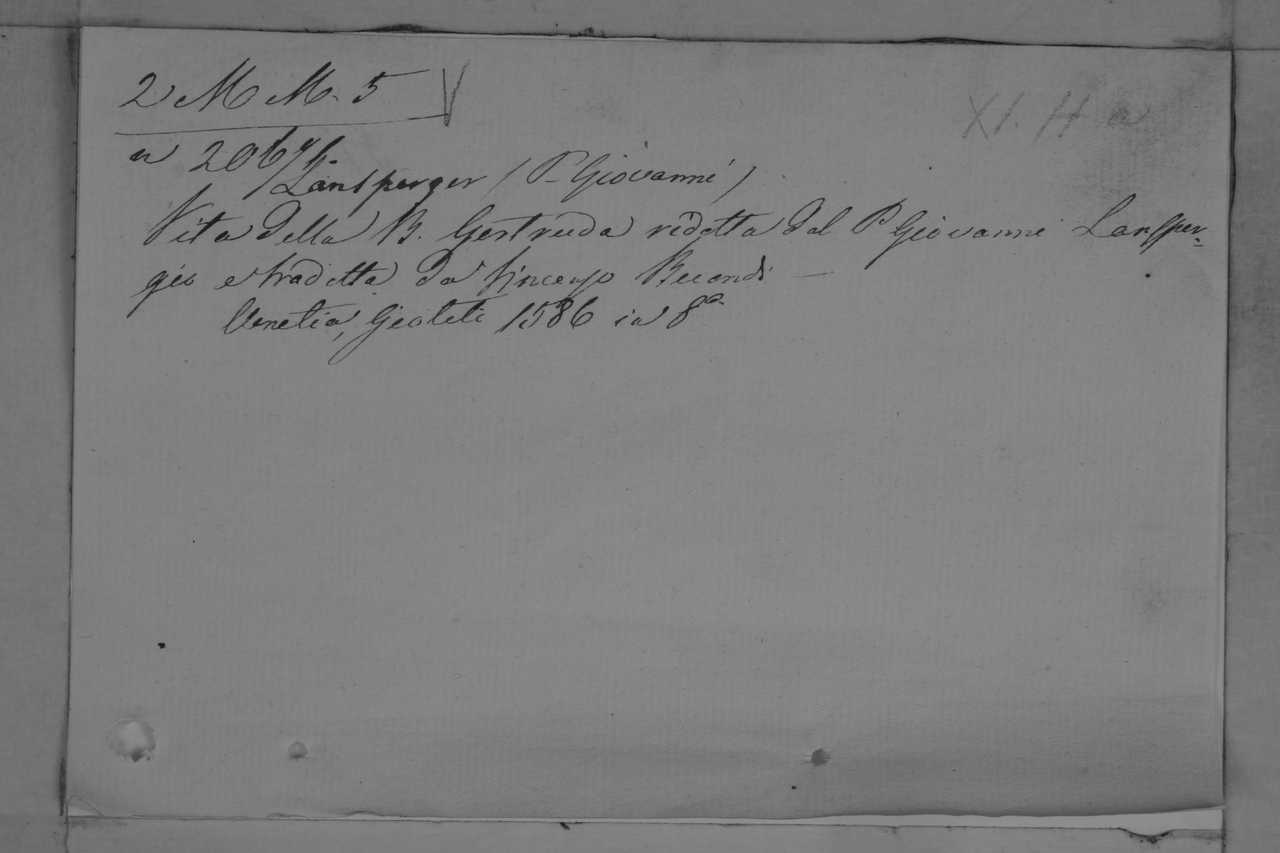 2 M M. 5 V
XI. H a
n 20671.
Lansperger (P. Giovanni)
Vita della B. Gertruda ridotta dal P. Giovanni Lansper-
gio e tradotta da Vincenzo Buondi
Venetia, Gioliti 1586 in 8º